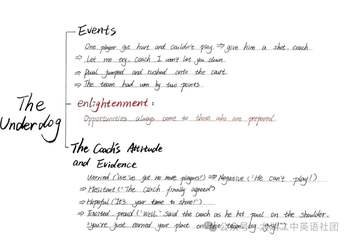 The Underdog
Events
One player got hurt and couldn't play. ⇒ give him a shot, coach
⇒ Let me try, Coach I won't let you down.
⇒ Paul jumped and rushed onto the court.
⇒ The team had won by two points.
enlightenment:
Opportunities always come to those who are prepared.
The Coach's Attitude and Evidence
Worried ("We've got no more players!") ⇒ Negative ("He can't play!")
⇒ Hesitant ("The coach finally agreed")
⇒ Hopeful ("It's your time to shine!")
⇒ Excited, proud ("Well," Said the coach as he hit paul on the shoulder,
"you're just earned your place on the team, big guy!")